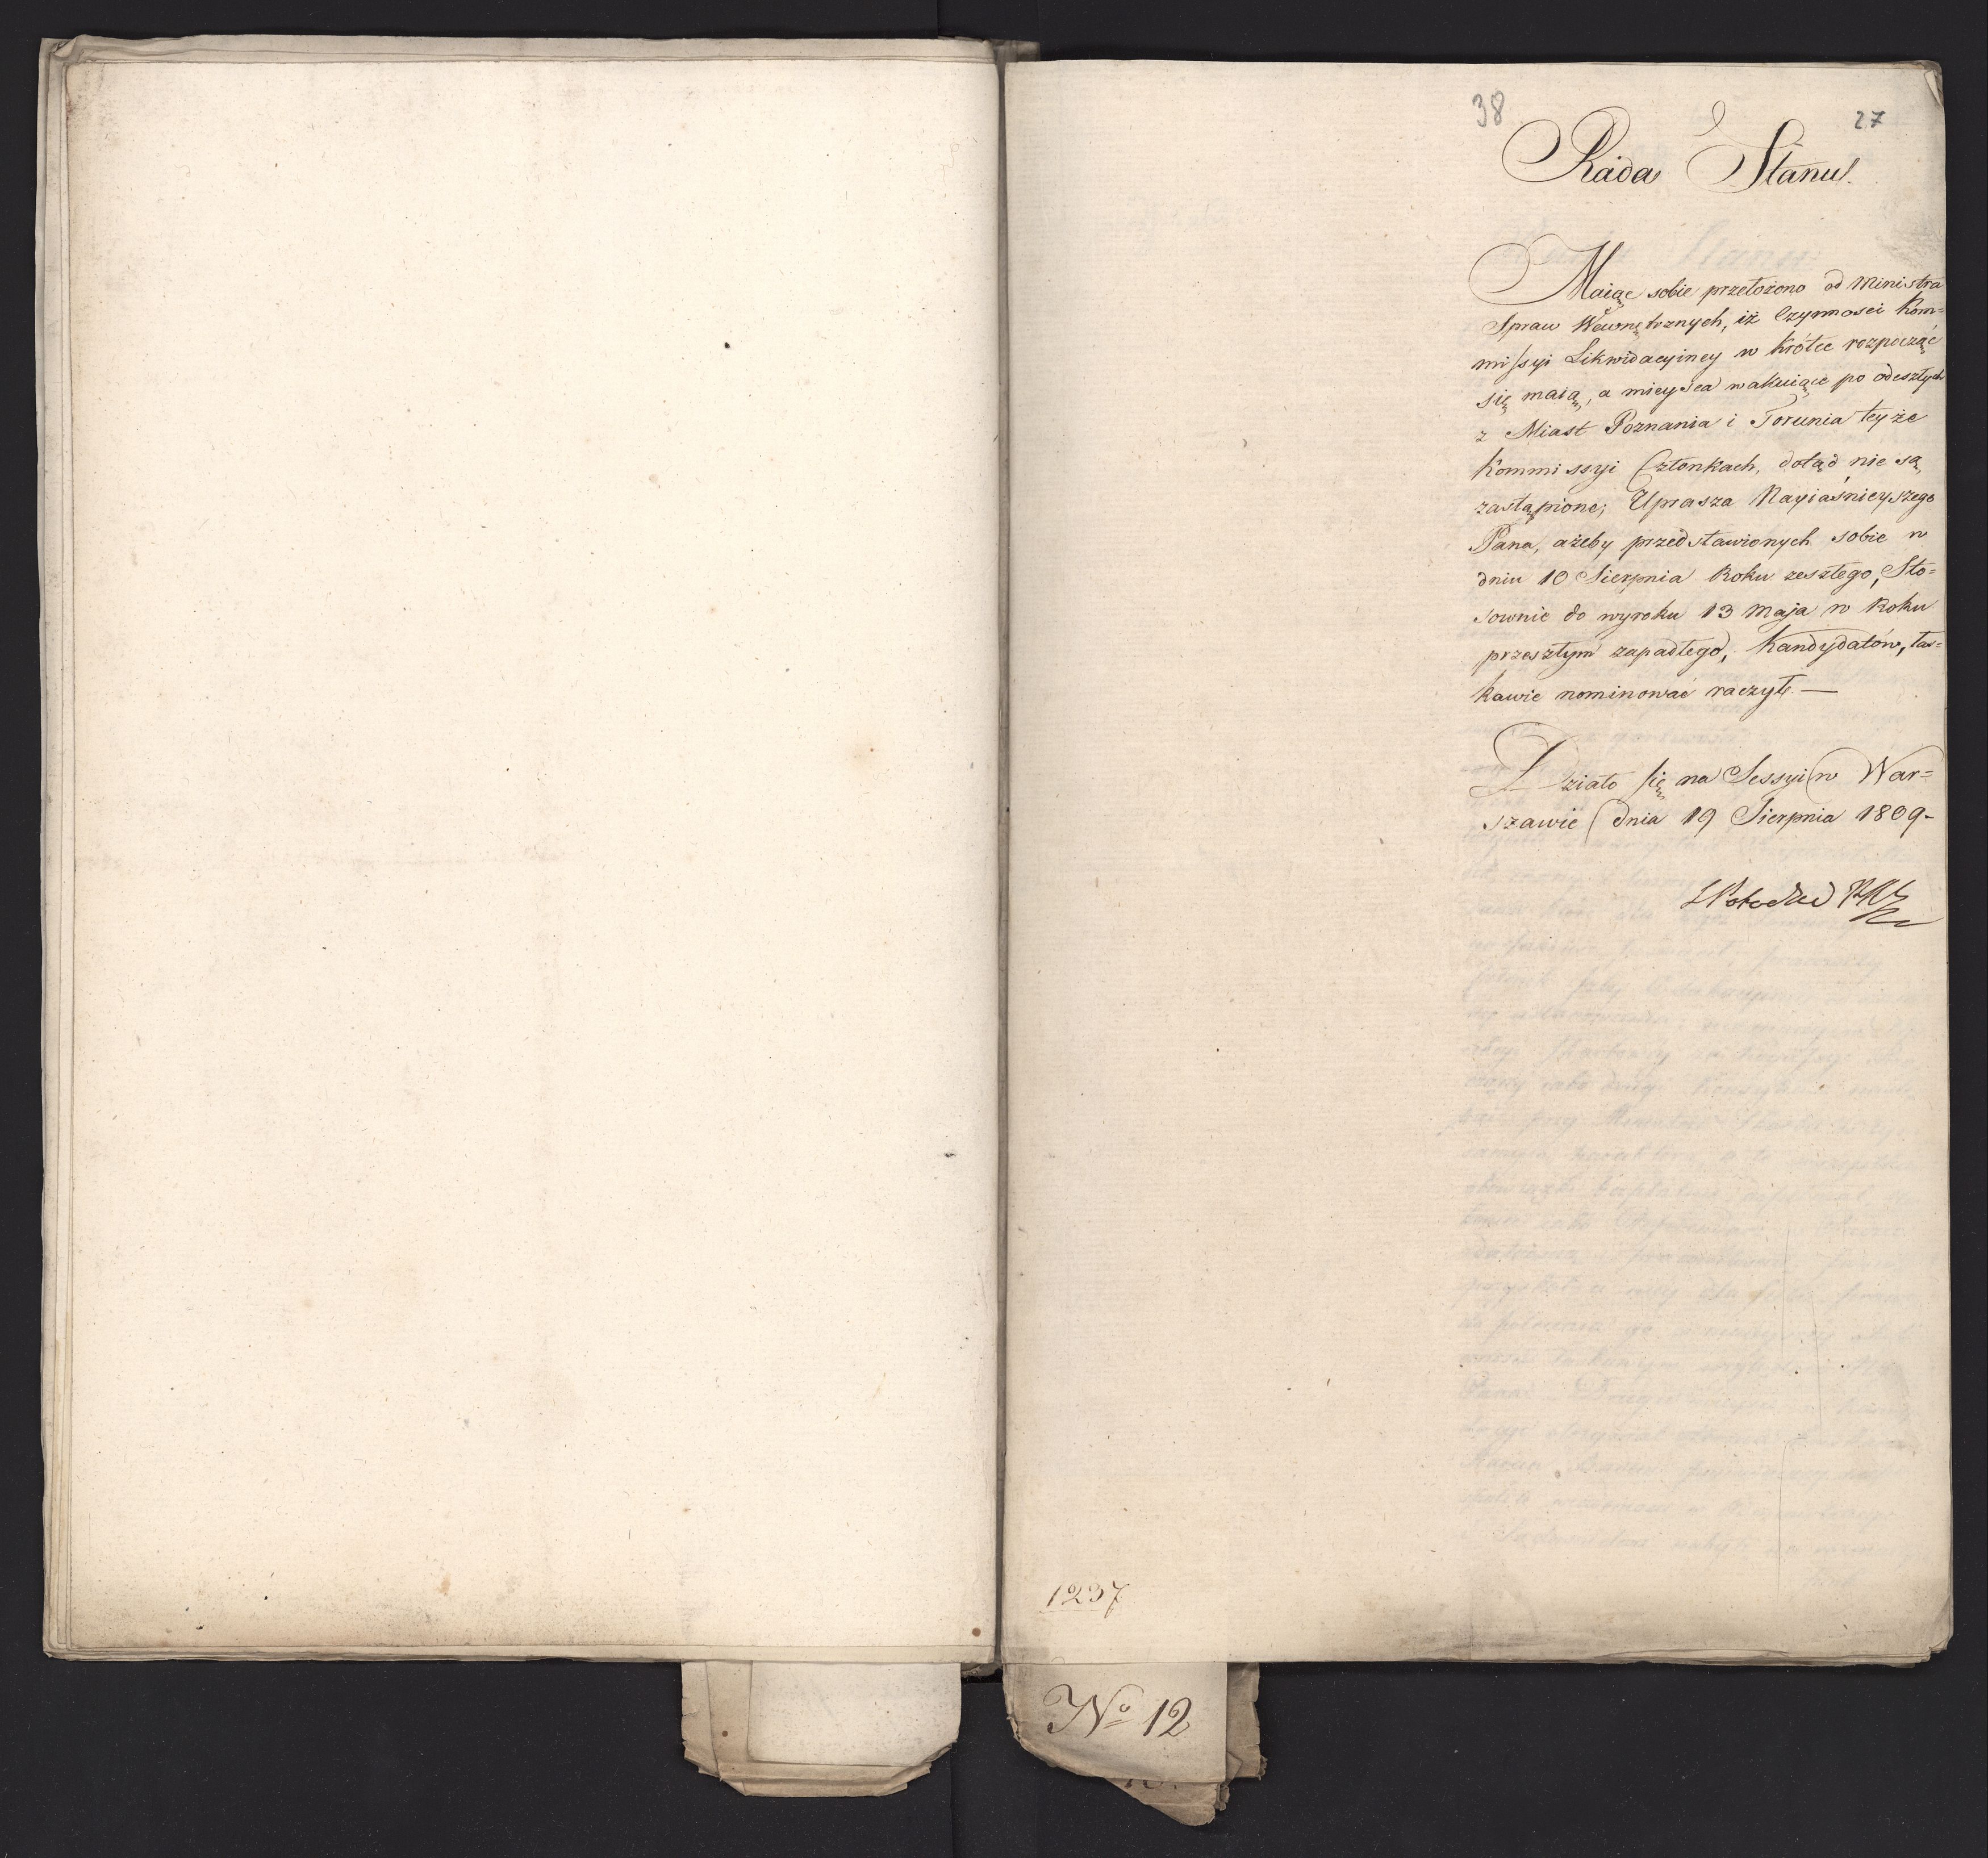 38
27
Rada Stanu.
Maiąc sobie przełożono od Ministra
Spraw Wewnętrznych, iż Czynności Kom=
missyi Likwidacyiney w krótce rozpocząć
się maią, a mieysca wakuiące po odeszłych
z Miast Poznania i Torunia teyże
Kommissyi Członkach, dotąd nie są
zastąpione; Uprasza Nayiaśnieyszego
Pana, ażeby przedstawionych sobie w
dniu 10 Sierpnia Roku zeszłego, Sto=
sownie do wyroku 13 Maja w Roku
przeszłym zapadłego, Kandydatów, łas=
kawie nominować raczył. —
Działo się na Sessyi w War=
szawie dnia 19 Sierpnia 1809-
Potocki
1237
No 12